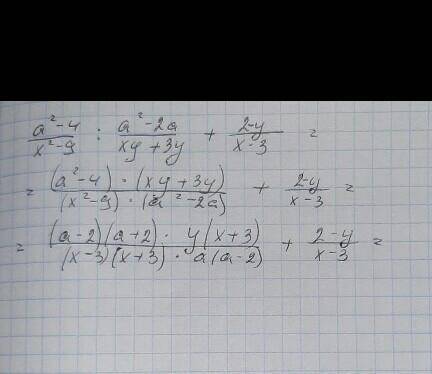 a²-4/x²-9 : a²-2a/xy+3y + 2-y/x-3 =
= (a²-4)·(xy+3y)/(x²-9)·(a²-2a) + 2-y/x-3 =
= (a-2)(a+2)·y(x+3)/(x-3)(x+3)·a(a-2) + 2-y/x-3 =